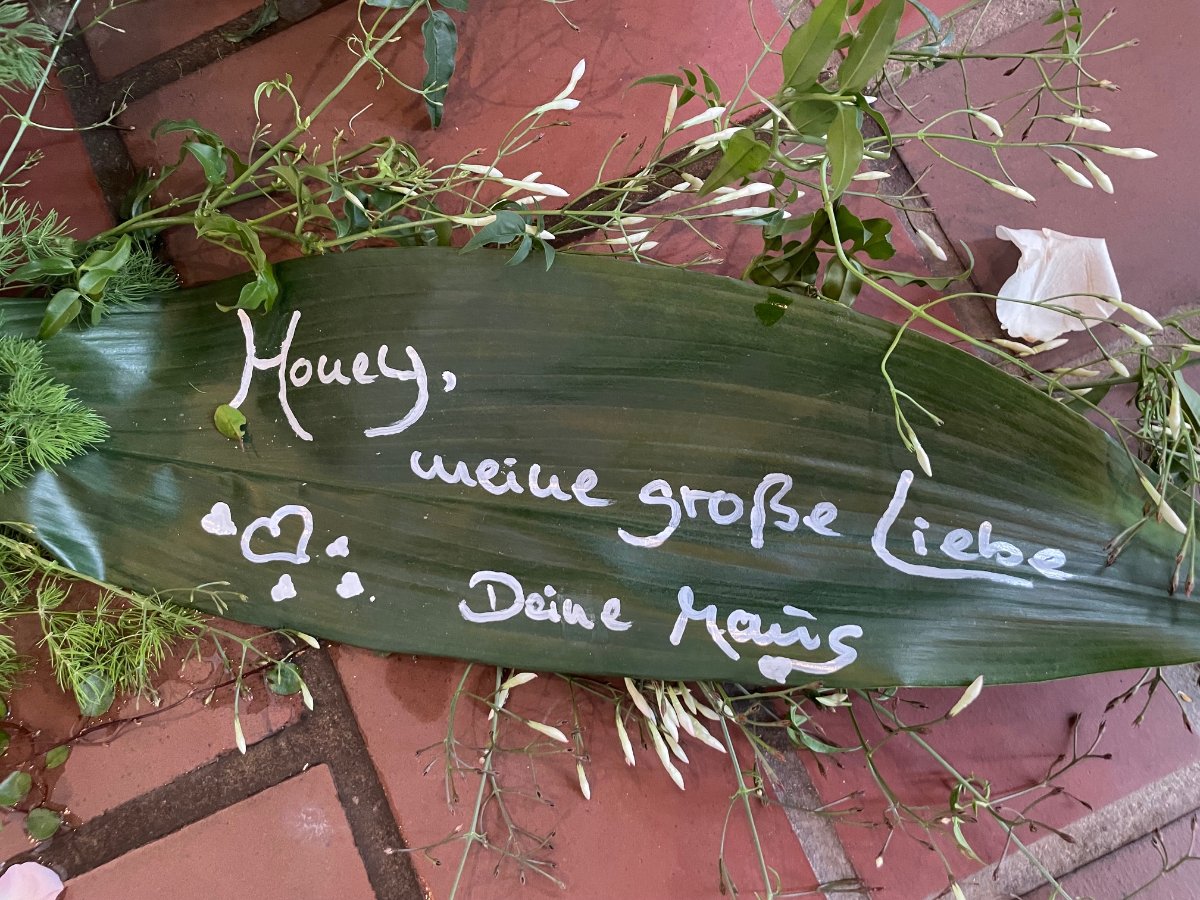 Honey,
meine große Liebe
Deine Maus